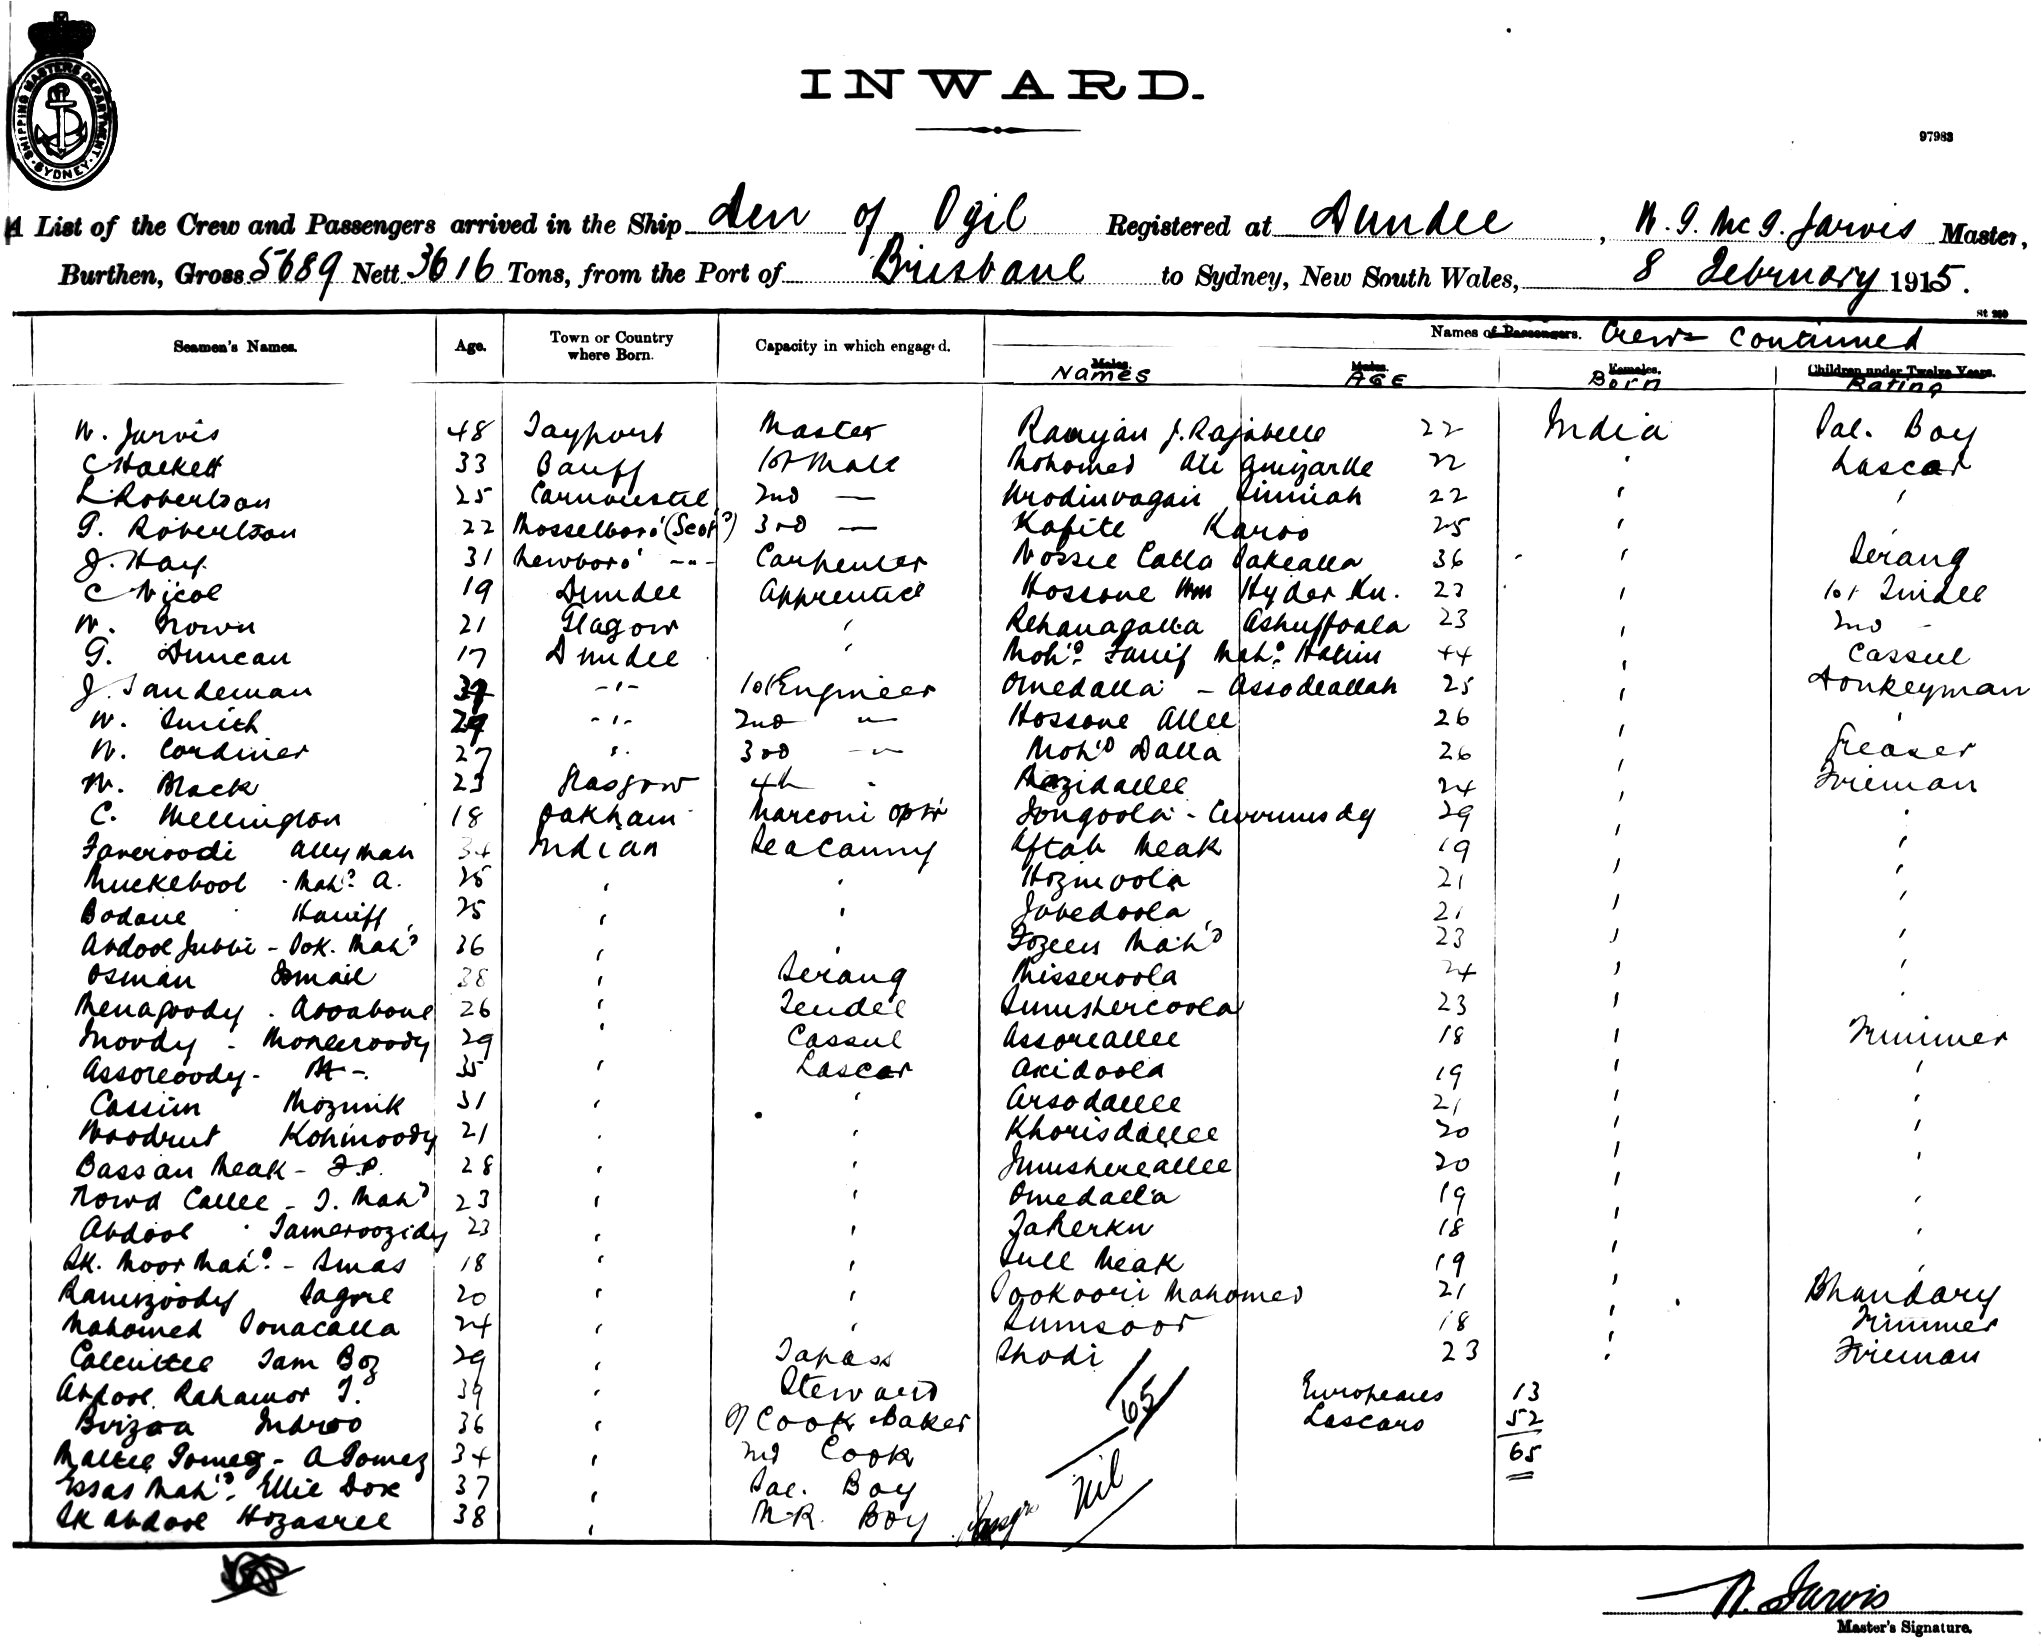 SHIPPING MASTERS DEPARTMENT. SYDNEY.
INWARD.
97983
A List of the Crew and Passengers arrived in the Ship Den of Ogil Registered at Dundee, W. G. McG. Jarvis Master,
Burthen, Gross 5689 Nett 3616 Tons, from the Port of Brisbane to Sydney, New South Wales, 8 February 1915.
St 290
Seamen's Names. Age. Town or Country where Born. Capacity in which engaged. Names of Passengers. Crew Continued
Males. NAMES Males. AGE Females. Born Children under Twelve Years. Rating
W. Jarvis 48 Tayport Master Ramjan J. Rajabelle 22 India Sal. Boy
C Hackett 33 Banff 1st Mate Mohomed Ali 22 ' Lascar
L Robertson 25 Carnoustie 2nd — 22 ' '
G. Robertson 22 Mosselboro' (Scotd) 3rd — Kafite Karoo 25 '
J. Hay. 31 Newboro' -"- Carpenter 36 ' Serang
C Nicol 19 Dundee Apprentice Hossone Hyder Ku. 22 ' 1st Tindel
W. Brown 21 Glagow ' Rehanagalla Ashuffoala 23 ' 2nd -
G. Duncan 17 Dundee ' Mohd. Haniif Mahd. Hakim 44 ' Cassul
J. Sandeman 37 -"- 1st Engineer Omedalla - Assodeallah 25 ' Donkeyman
W. Smith 29 -"- 2nd " Hossone Allee 26 ' '
W. Cordiner 27 ". 3rd -"- Mohd Dalla 26 ' Greaser
W. Black 23 Glasgow 4th " Mozidallee 24 ' Fireman
C. Wellington 18 Oakham Marconi Optr 29 ' '
Allymah 34 Indian Seacunny Aftab Meak 19 ' '
Muckebool - Mahd. A. 25 ' ' Hozmoola 21 ' '
Bodane Haniff 25 ' ' Jobedoola 21 ' '
Abdool Jubbi - Dok. Mahd 36 ' ' Fozeen Mahd 23 ' '
Osman Ismail 38 ' Serang Misseroola 24 ' '
Menagoody. Asoabone 26 ' Tendel Sumshercoola 23 ' '
Moody - Moneeroody 29 ' Cassul Assoreallee 18 ' Trimmer
Assoreoody - 35 ' Lascar Akidoola 19 ' '
Cassim Mozmik 31 ' ' Arsodallee 21 ' '
Woodrut Kohinoody 21 ' ' Khorisdallee 20 ' '
Bassan Meak - F.P. 28 ' ' Jumshereallee 20 '
Nowd Callee - T. Mahd 23 ' ' Omedalla 19 ' '
Abdool Tameroozidy 23 ' ' Zaherku 18 ' '
Sk. Noor Mahd. - Smas 18 ' ' Sull Meak 19 ' '
Ramizoody Sagore 20 ' ' Pookoori Mahomed 21 ' Bhundary
Mahomed Sonacalla 24 ' ' Sumsoor 18 ' Trimmer
Calcuttee Tam Boz 29 ' Tapass Shodi 23 ' Fireman
Abdool Rahamor I. 39 ' Steward 65 Europeans 13
Indroo 36 ' Cook & Baker Lascars 52
Gomez - A Gomez 34 ' 2nd Cook 65
Essas Mahd. Ellie Dox 37 ' Sal. Boy
Sk Abdool Hozasree 38 ' M.R. Boy Passgrs Nil
W. Jarvis
Master's Signature.